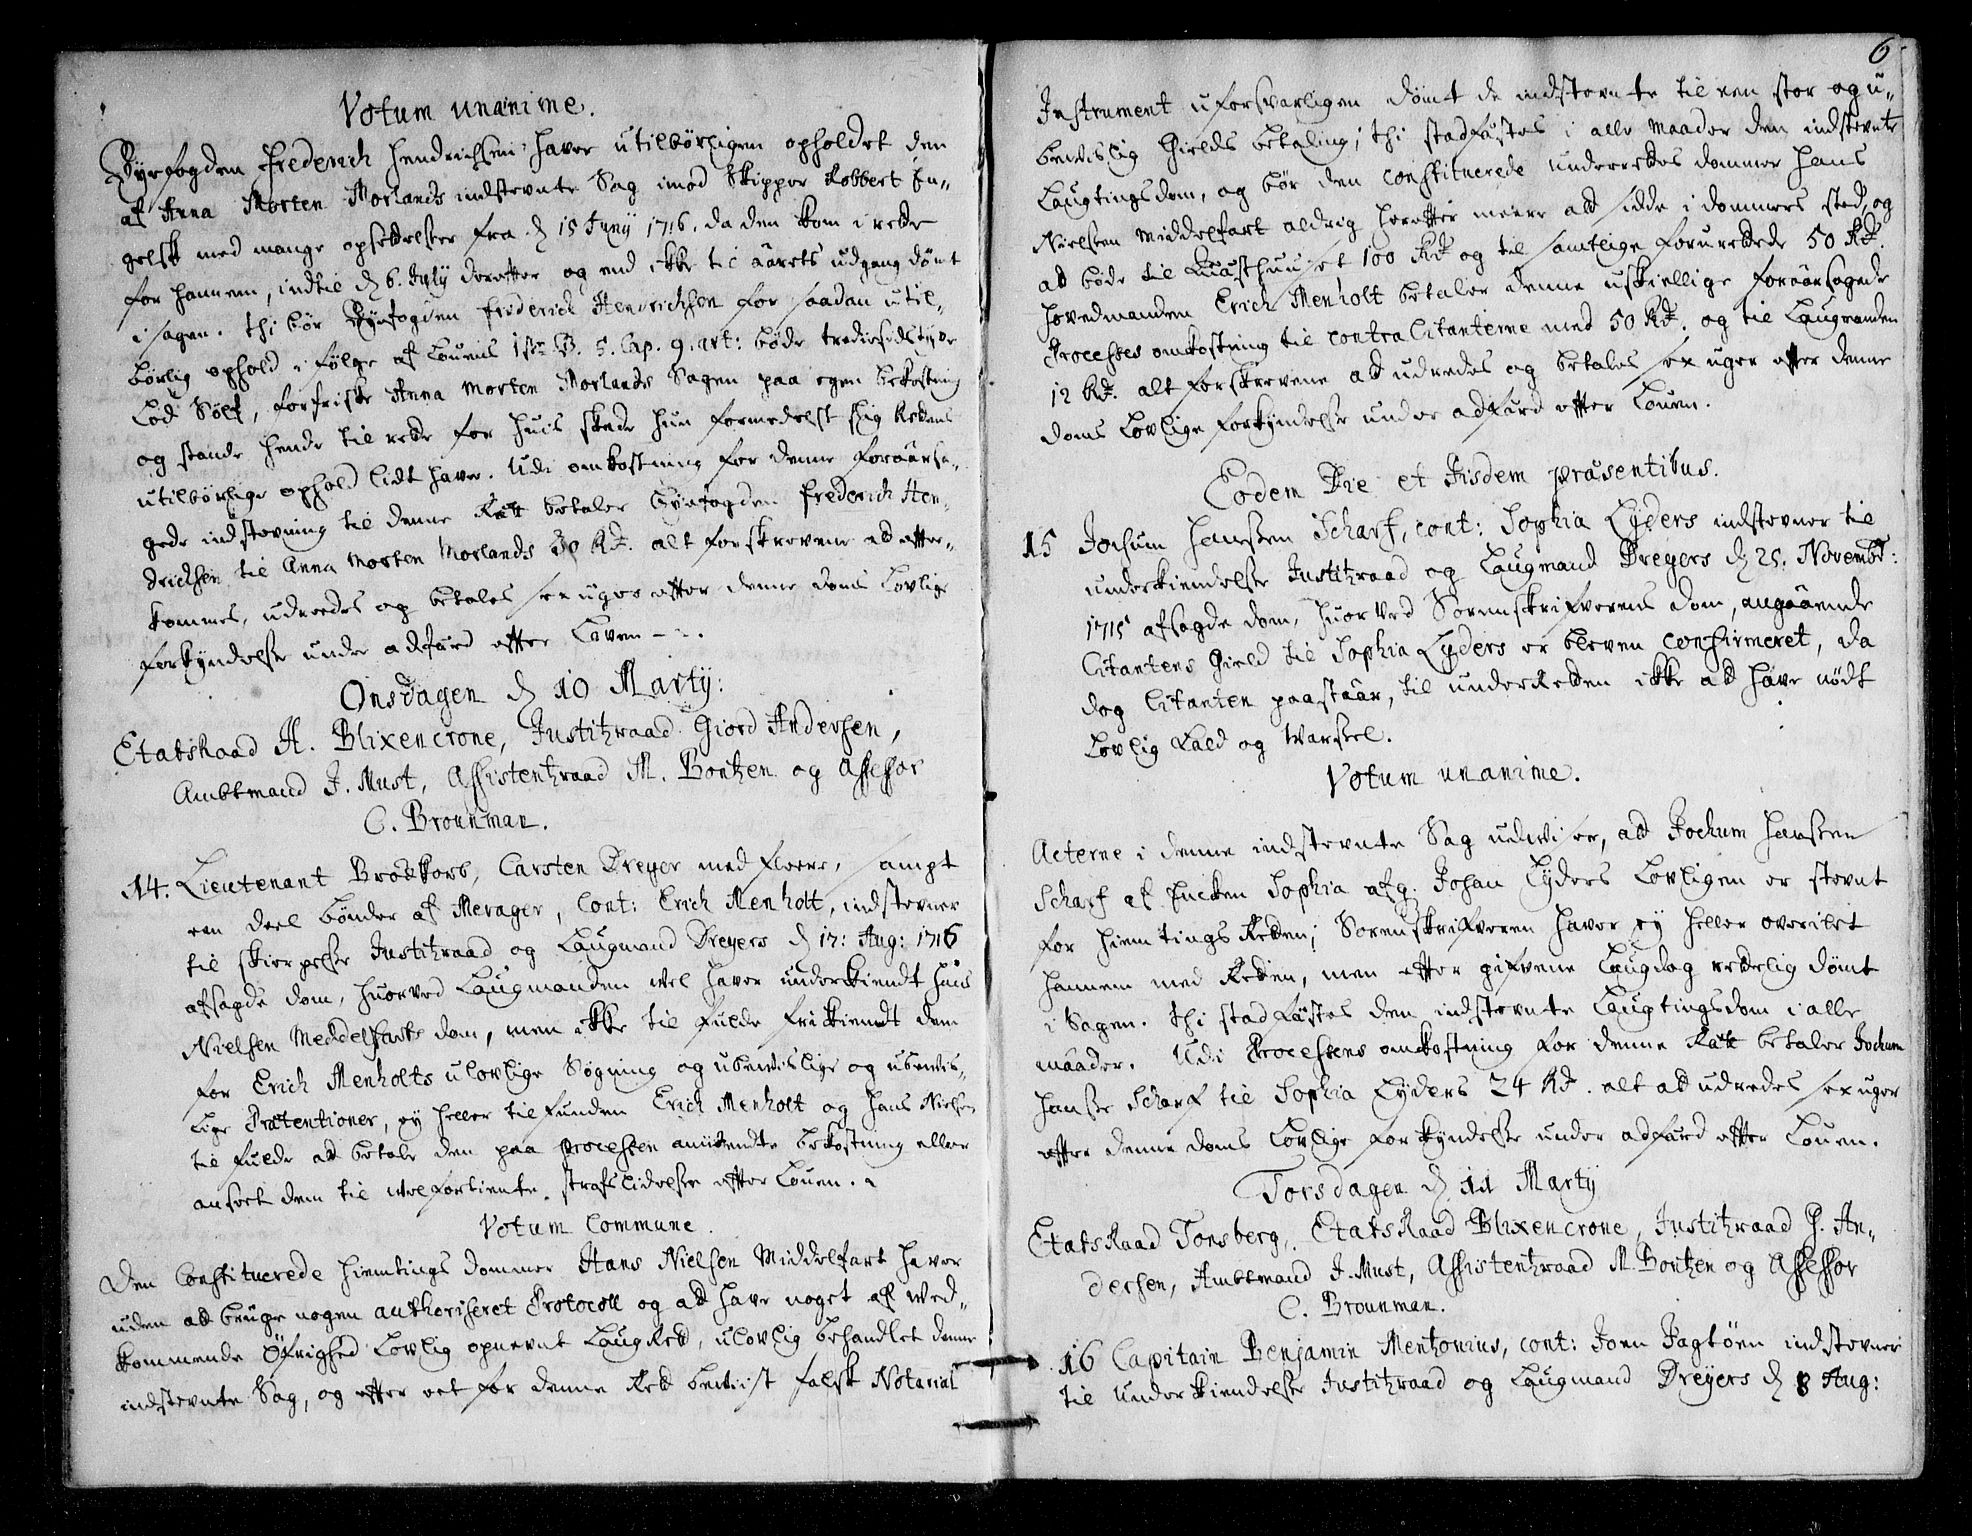 Votum unanime.
Byefogden Frederich Hendrichsen haver utilbørligen opholdet den
af Anna Morten Morlands indstevnte Sag imod Skipper Robbert En-
gelsk med mange opsettelser fra d 15 Junij 1716, da den kom i rette
for hannem, indtil d 6. July derefter og end ikke til aarets udgang dømt
i sagen. Thi bør Byefogden Friderich Hendrichsen for saadan util-
børlig ophold i følge af Lovens 1ste B. 5. Cap. 9. art: bøde tredsindstyve
Lod Sølf, forfriske Anna Morten Morlands Sagen paa egen bekostning
og stande hende til rette for huis skade hun formedelst slig Rettens
utilbørlige ophold lidt haver. Udi omkostning for denne foraarsa-
gede indstevning til denne Rätt betaler Byefogden Frederich Hen-
drichsen til Anna Morten Morlands 30 Rd. alt forskrevene at efter-
kommes, udreedes og betales sex uger efter denne doms Lovlige
forkyndelse under adfärd efter Loven.
Onsdagen d 10 Martij:
Etatsraad A. Blixencrone, Justitzraad Giord Andersen,
Ambtmand J. Must, Assistentzraad M. Bentzen og Assessor
C. Brounman.
14. Lieutenant Brodkorb, Carsten Dreyer med fleere, sampt
een deel bønder af Merager, Cont: Erich Menholt, indstevner
til skierpelse Justitzraad og Laugmand Dreyers d 17: Aug: 1716
afsagde dom, huorved Laugmanden vel haver underkiendt Hans
Nielsen Meddelfarts dom, men ikke til fulde frikiendt dem
for Erich Menholts ulovlige Søgning og ubevislige og ubevis-
lige Prætentioner, ey heller tilfunden Erich Menholt og Hans Nielsen
til fulde at betale den paa processen anvendte bekostning eller
anseet dem til velfortiente strafs lidelse efter Loven.
Votum Commune.
Den Constituerede hiemtings dommer Hans Nielsen Middelfart haver
uden at bruge nogen authoriseret Protocoll og at have noget af ved-
kommende Øfrighed Lovlig opnevnt Laugrett, ulovlig behandlet denne
indstevnte Sag, og efter eet for denne Rett beviist falsk Notarial
6
Instrument uforsvarligen dømt de indstevnte til een stor og u-
bevislig Gields betaling; thi stadfästes i alle maader den indstevnte
Laugtingsdom, og bør den Constituerede underrettes dommer Hans
Nielsen Middelfart aldrig herefter meere at sidde i dommers sted, og
at bøde til Quästhuuset 100 Rd og til samtlige forurettede 50 Rd.
hovedmanden Erich Menholt betaler denne uskiellige foraarsagede
Processes omkostning til contra Citanterne med 50 Rd. og til Laugmanden
12 Rd. alt forskrevene at udredes og betales sex uger efter denne
doms Lovlige forkyndelse under adfärd efter Loven.
Eodem Die et Iisdem præsentibus.
15 Jochum Hanssen Scharf, cont: Sophia Lyders indstevner til
underkiendelse Justitzraad og Laugmand Dreyers d 25. Novembr:
1715 afsagde dom, huorved Sorenskrifverens dom, angaaende
Citantens Gield til Sophia Lyders er bleven confirmeret, da
dog Citanten paastaar, til underretten ikke at have nødt
Lovlig Kald og Varsel.
Votum unanime.
Acterne i denne indstevnte Sag udviser, at Jochum Hanssen
Scharf af Encken Sophia afg. Johan Lyders Lovligen er stevnt
for hiemtings Retten; Sorenskrifveren haver ey heller overilet
hannem med Retten, men efter gifvene Laugdag rettelig dømt
i Sagen. Thi stadfästes den indstevnte Laugtingsdom i alle
maader. Udi Processens omkostning for denne Rätt betaler Jochum
Hansse Scharf til Sophia Lyders 24 Rd. alt at udredes sex uger
efter denne doms Lovlige forkyndelse under adfärd efter Loven.
Torsdagen d 11 Martij
EtatsRaad Tonsberg, EtatsRaad Blixencrone, Justitzraad G. An-
dersen, Ambtmand J. Must, Assistentzraad M. Bentzen og Assessor
C. Brounman.
16 Capitain Benjamin Mentzonius, cont: Joen Jagtøen indstevner
til underkiendelse Justitzraad og Laugmand Dreyers d 8 Aug: